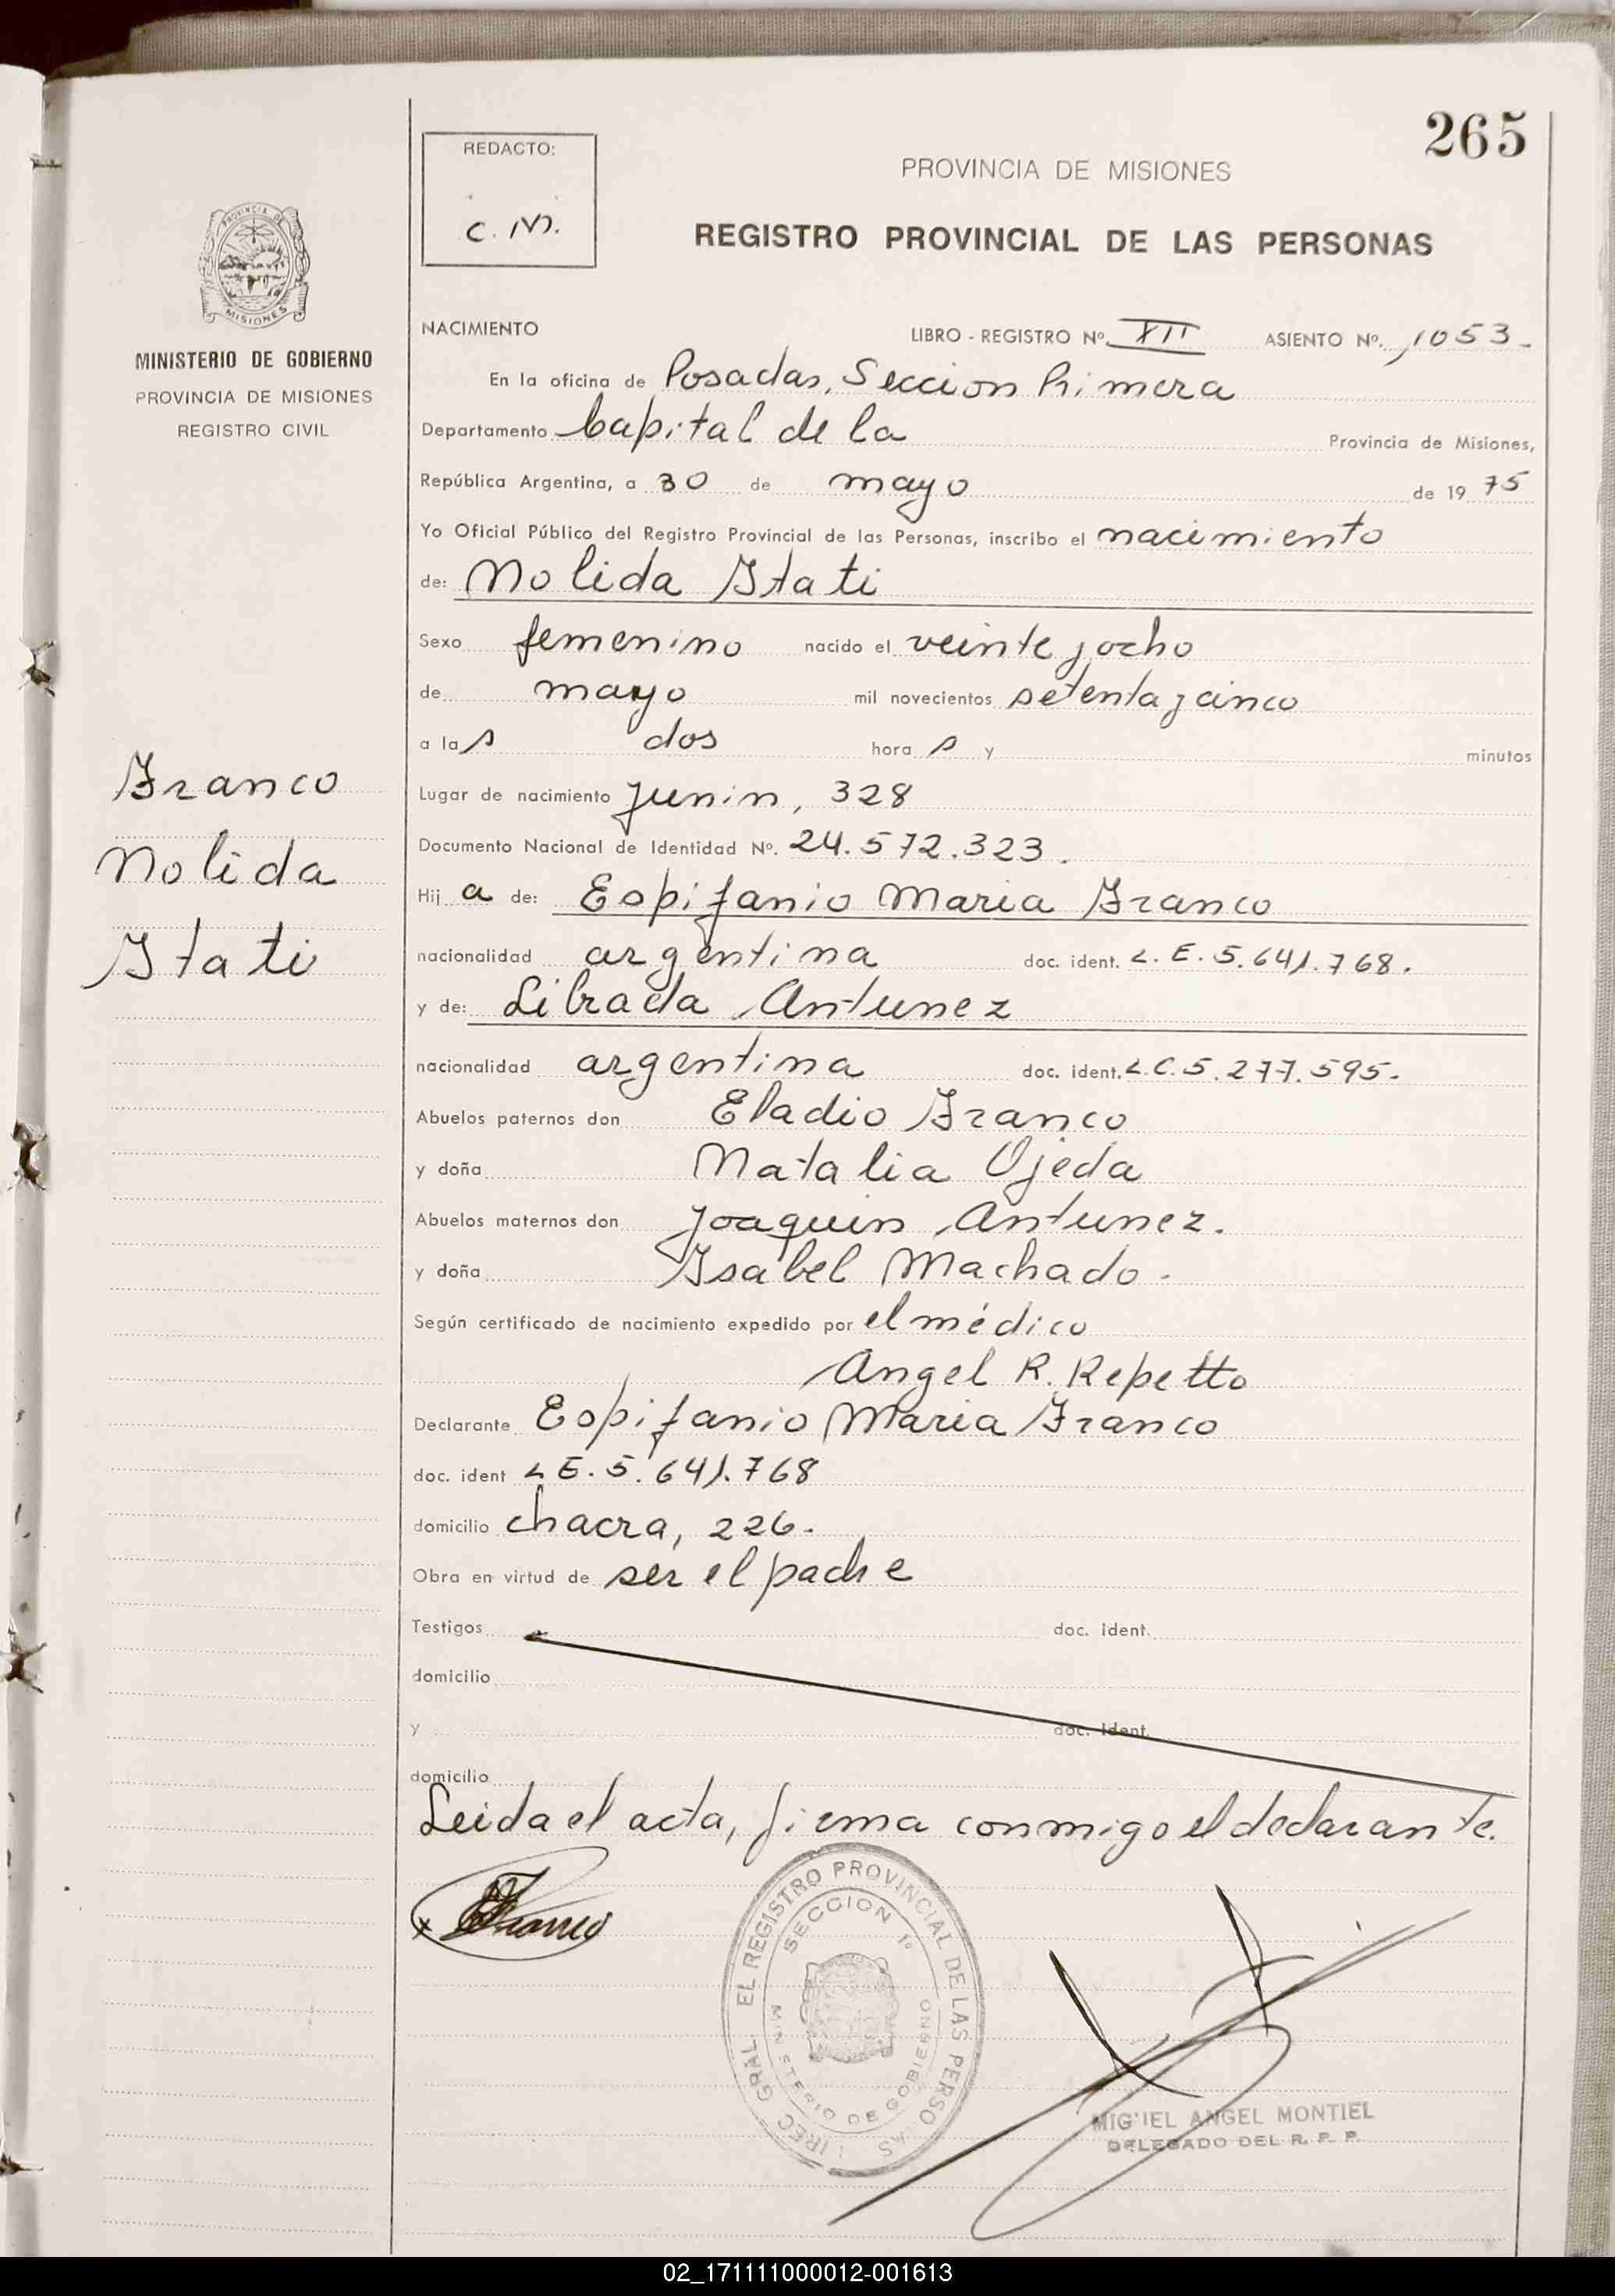 265
REDACTO:
C. M.
PROVINCIA DE MISIONES
REGISTRO PROVINCIAL DE LAS PERSONAS
PROVINCIA DE
MISIONES
MINISTERIO DE GOBIERNO
PROVINCIA DE MISIONES
REGISTRO CIVIL
Franco
Nolida
Itati
NACIMIENTO LIBRO - REGISTRO Nº. XII ASIENTO Nº. 1053.
En la oficina de Posadas, Seccion Primera
Departamento Capital de la Provincia de Misiones,
República Argentina, a 30 de mayo de 1975
Yo Oficial Público del Registro Provincial de las Personas, inscribo el nacimiento
de: Nolida Itati
Sexo femenino nacido el veinte y ocho
de mayo mil novecientos setenta y cinco
a las dos horas y minutos
Lugar de nacimiento Junin, 328
Documento Nacional de Identidad Nº. 24.572.323.
Hija de: Espifanio Maria Franco
nacionalidad argentina doc. ident. L.E. 5.641.768.
y de: Librada Antunez
nacionalidad argentina doc. ident. L.C. 5.277.595.
Abuelos paternos don Eladio Franco
y doña Natalia Ojeda
Abuelos maternos don Joaquin Antunez.
y doña Isabel Machado.
Según certificado de nacimiento expedido por el médico
Angel R. Repetto
Declarante Espifanio Maria Franco
doc. ident L.E. 5.641.768
domicilio chacra, 226.
Obra en virtud de ser el padre
Testigos doc. ident.
domicilio
y doc. ident.
domicilio
Leida el acta, firma conmigo el declarante.
x Franco
GRAL EL REGISTRO PROVINCIAL DE LAS PERSONAS
SECCION 1º
MINISTERIO DE GOBIERNO
MIGUEL ANGEL MONTIEL
DELEGADO DEL R. P. P.
02_171111000012-001613